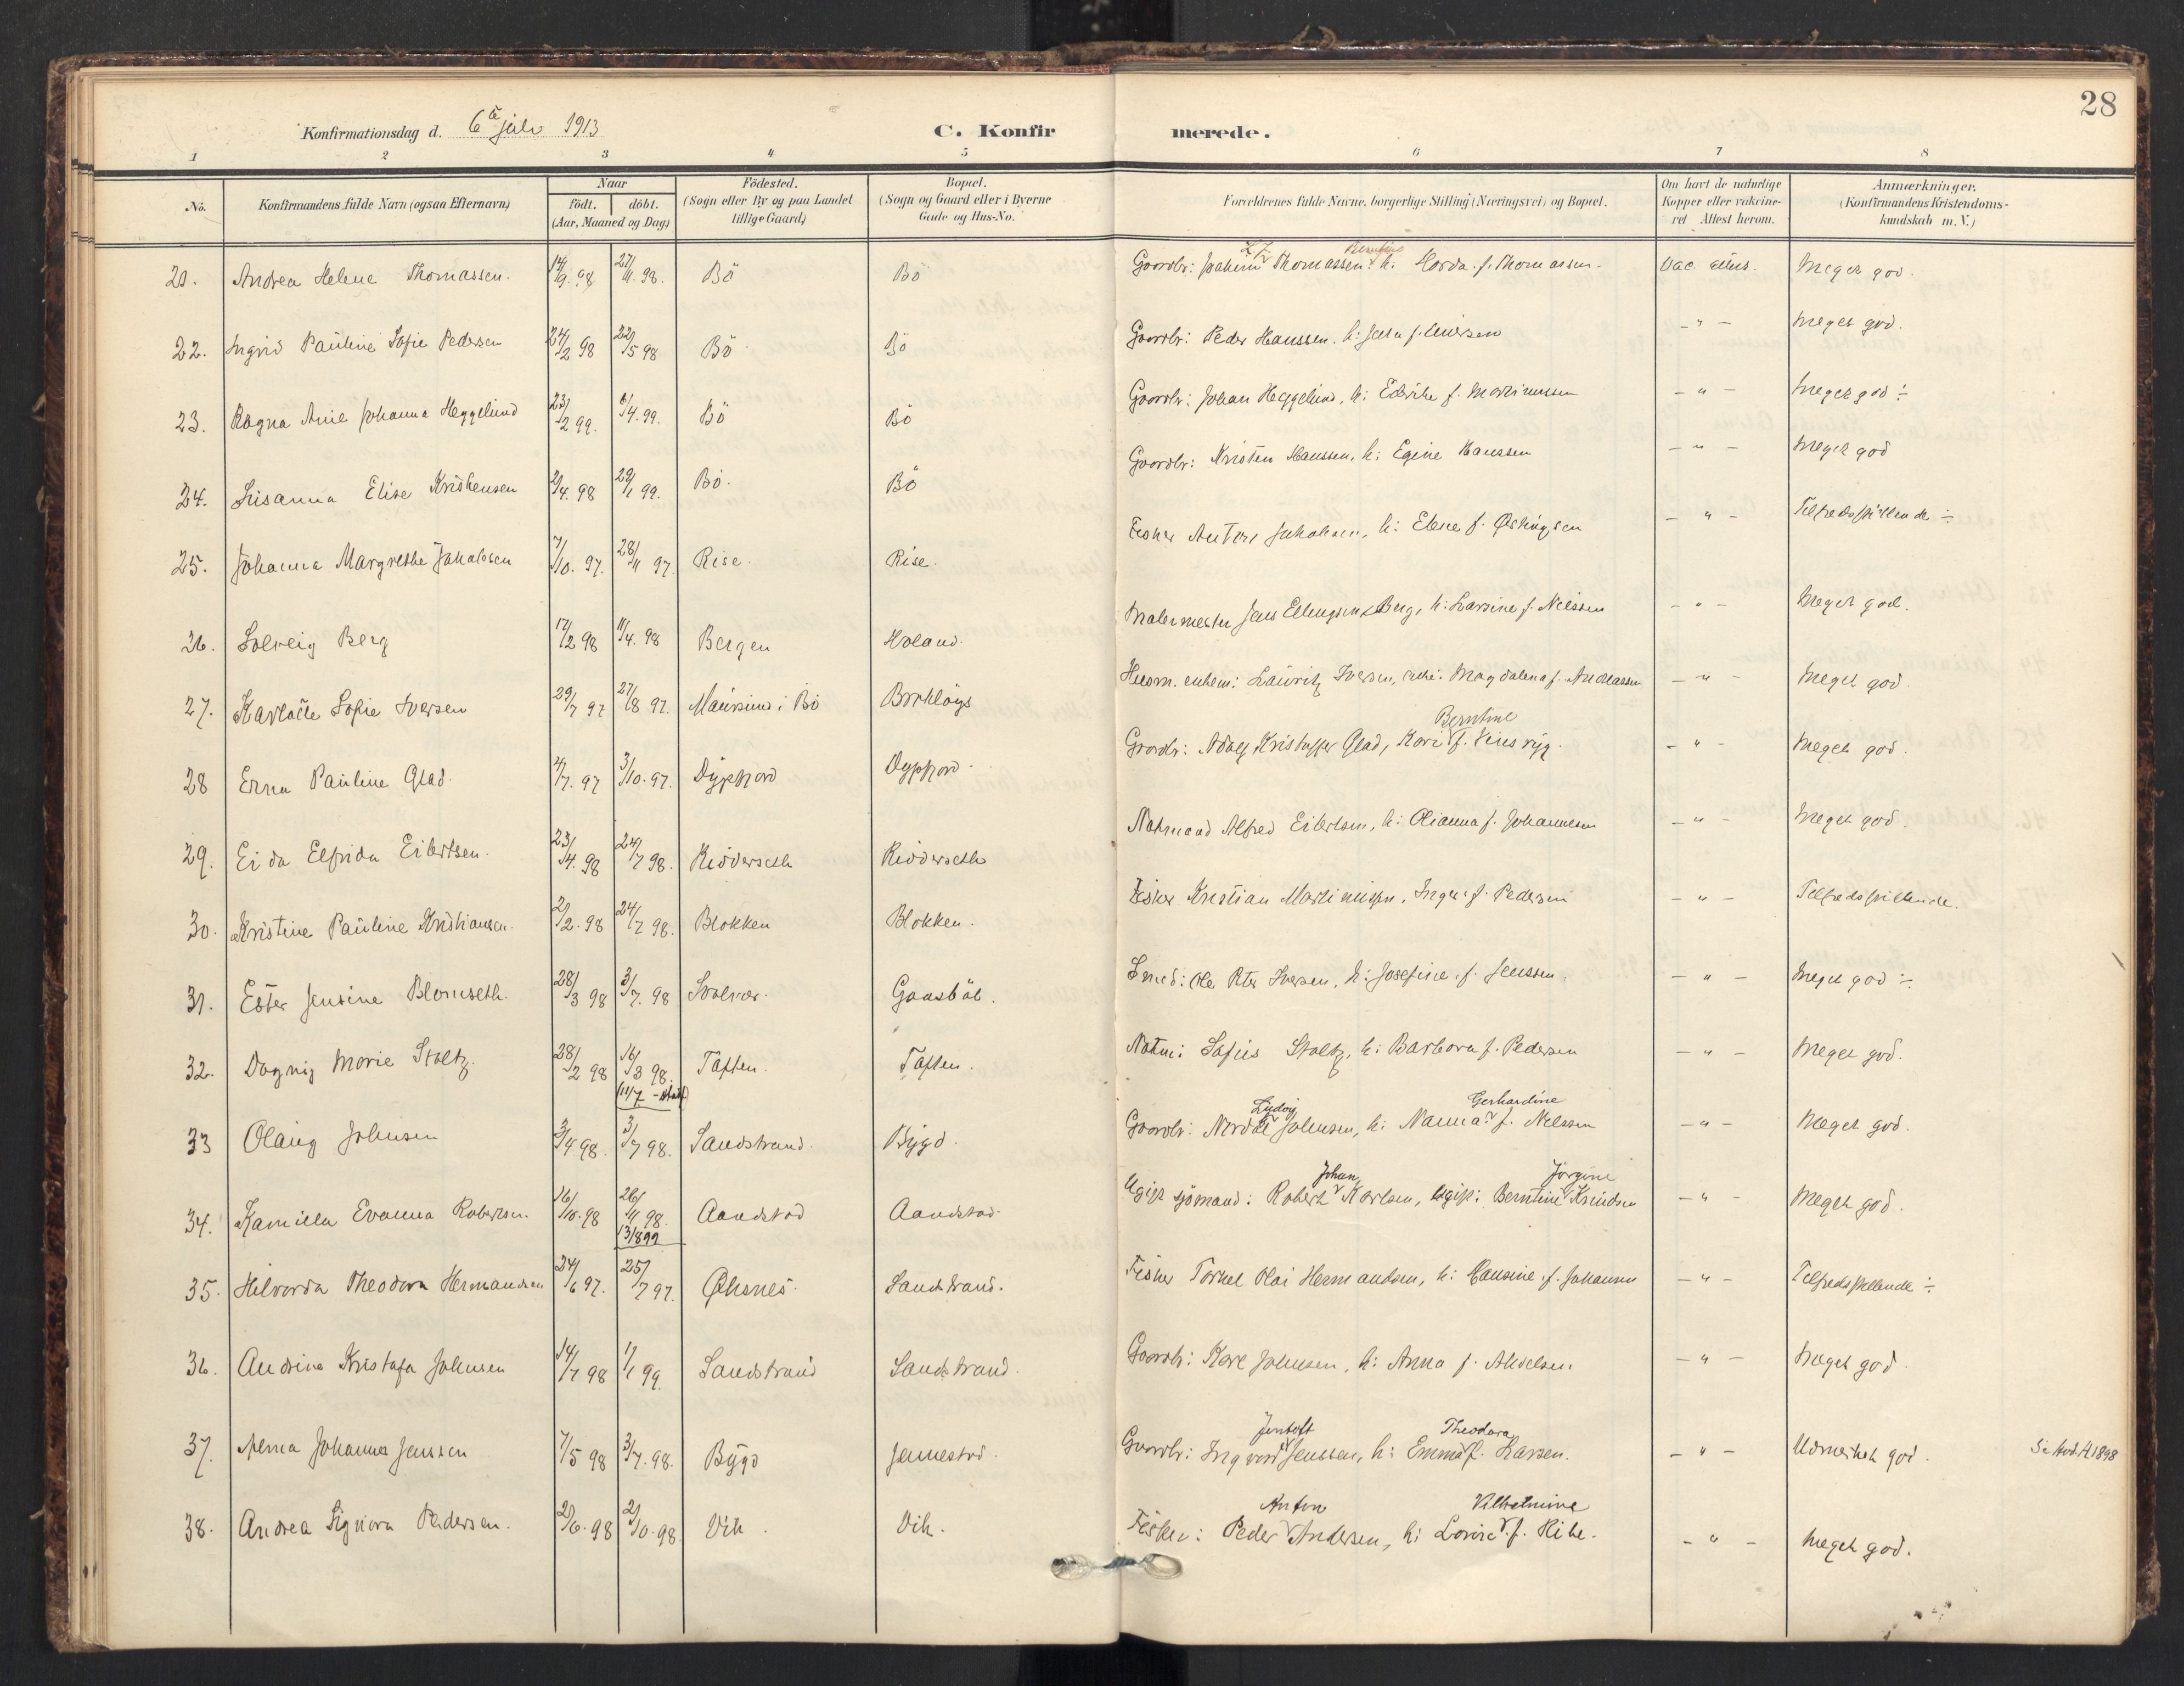 28
Konfirmationsdag d. 6te juli 1913
C. Konfirmerede.
1 2 3 4 5 6 7 8
No. Konfirmandens fulde Navn (ogsaa Efternavn) Naar födt. döbt. (Aar, Maaned og Dag) Födested. (Sogn eller By og paa Landet tillige Gaard) Bopæl. (Sogn og Gaard eller i Byerne Gade og Hus-No. Forældrenes fulde Navne, borgerlige Stilling (Næringsvei) og Bopæl. Om havt de naturlige Kopper eller vakcineret Attest herom. Anmærkninger. (Konfirmandens Kristendomskundskab m. V.)
21. Andrea Helene Thomassen. 14/9. 98 27/11. 98. Bö Bö Gaardbr: Joakim Thomassen. h. Berntine f. Thomassen. Vac. Meget god.
22. Ingrid Pauline Sofie Pedersen 24/2 98 22/5 98 Bö Bö Gaardbr: Peder Hanssen. h: f. Meget god.
23. Ragna Anie Johanna Heggelund 23/2 99. 4. 99. Bö Bö Gaardbr: Johan Heggelund, h: f. Martinussen - " - Meget god ÷
24. Susanna Elise Kristensen 2/4. 98 29/1 99. Bö. Bö Gaardbr: Kristen Hanssen, h: Egine Hanssen - " - Meget god
25. Johanna Margrethe Jakobsen 7/10. 97. 28/11 97. Rise. Rise. Fisker Anton Jakobsen, h: Elene f. - " - Tilfredsstillende ÷
26. Solveig Berg 12/2 98 11/4. 98 Bergen Holand. Malermester Jens Ellingsen Berg, h: Larsine f. Nilssen - " - Meget god.
27. Karlotte Sofie Iversen 29/7 97 27/8 97. Maursund i Bö Lauritz Iversen, Magdalena f. Andreassen - " - Meget god.
28 Erna Pauline Glad. 4/7. 97 3/10. 97. Dypfjord Dypfjord. Gaardbr: Adolf Kristoffer Glad, Kari Berntine f. - " - Meget god.
29. Eida Elfrida Eilertsen. 23/4. 98 24/7 98. Ridderseth Ridderseth Notmand Alfred Eilertsen, h: Olianna f. Johannesen - " - Meget god.
30. Kristine Pauline Kristiansen. 2/2. 98 24/7 98. Blokken Blokken. Fisker Kristian Martinussen. Inga f. Pedersen - " - Tilfredsstillende.
31. Ester Jensine Blomseth. 28/3 98 3/7. 98 Svolvær. Smed: Ole Peter Iversen, h: Josefine f. Jenssen. - " - Meget god ÷
32. Dagny Marie Stoltz. 28/2 98 16/3 98. Taften. Taften. Notm: Sofus Stoltz, h: Barbora f. Pedersen - " - Meget god.
33 Olaug Johnsen 3/4 98. 3/7 98. Sandstrand. Bygd. Gaardbr: Nordal Ludvig Johnsen, h: Nanna Gerhardine f. Nilssen - " - Meget god.
34. Kamilla Evanna Robertsen. 16/10. 98 26/11 98. 13/8 99 Aandstad Aandstad. Ugift sjömand: Robert Johan Karlsen, ugift: Berntine Jörgine Knudsen - " - Meget god.
35. Halvarda Theodora Hermandsen 24/6 97. 25/7 97. Öksnes. Sandstrand. Fisker Torkel Olai Hermandsen, h: Hansine f. Johannesen - " - Tilfredsstillende ÷
36. Andrine Kristofa Johnsen 14/7 98 1/1 99. Sandstrand Sandstrand. Gaardbr: Karl Johnsen, h: Anna f. - " - Meget god.
37. Johanna Jenssen 7/5 98 3/7. 98. Bygd Jennestad. Gaardbr: Ingvard Jentoft Jenssen, h: Emma Theodora f. Larsen. - " - Udmerket god. 1898
38. Andrea Signora Pedersen. 2/6. 98 2/10. 98. Vik. Vik. Fisker: Peder Anton Andersen, h: Lovise Vilhelmine f. Ribe. - " - Meget god.